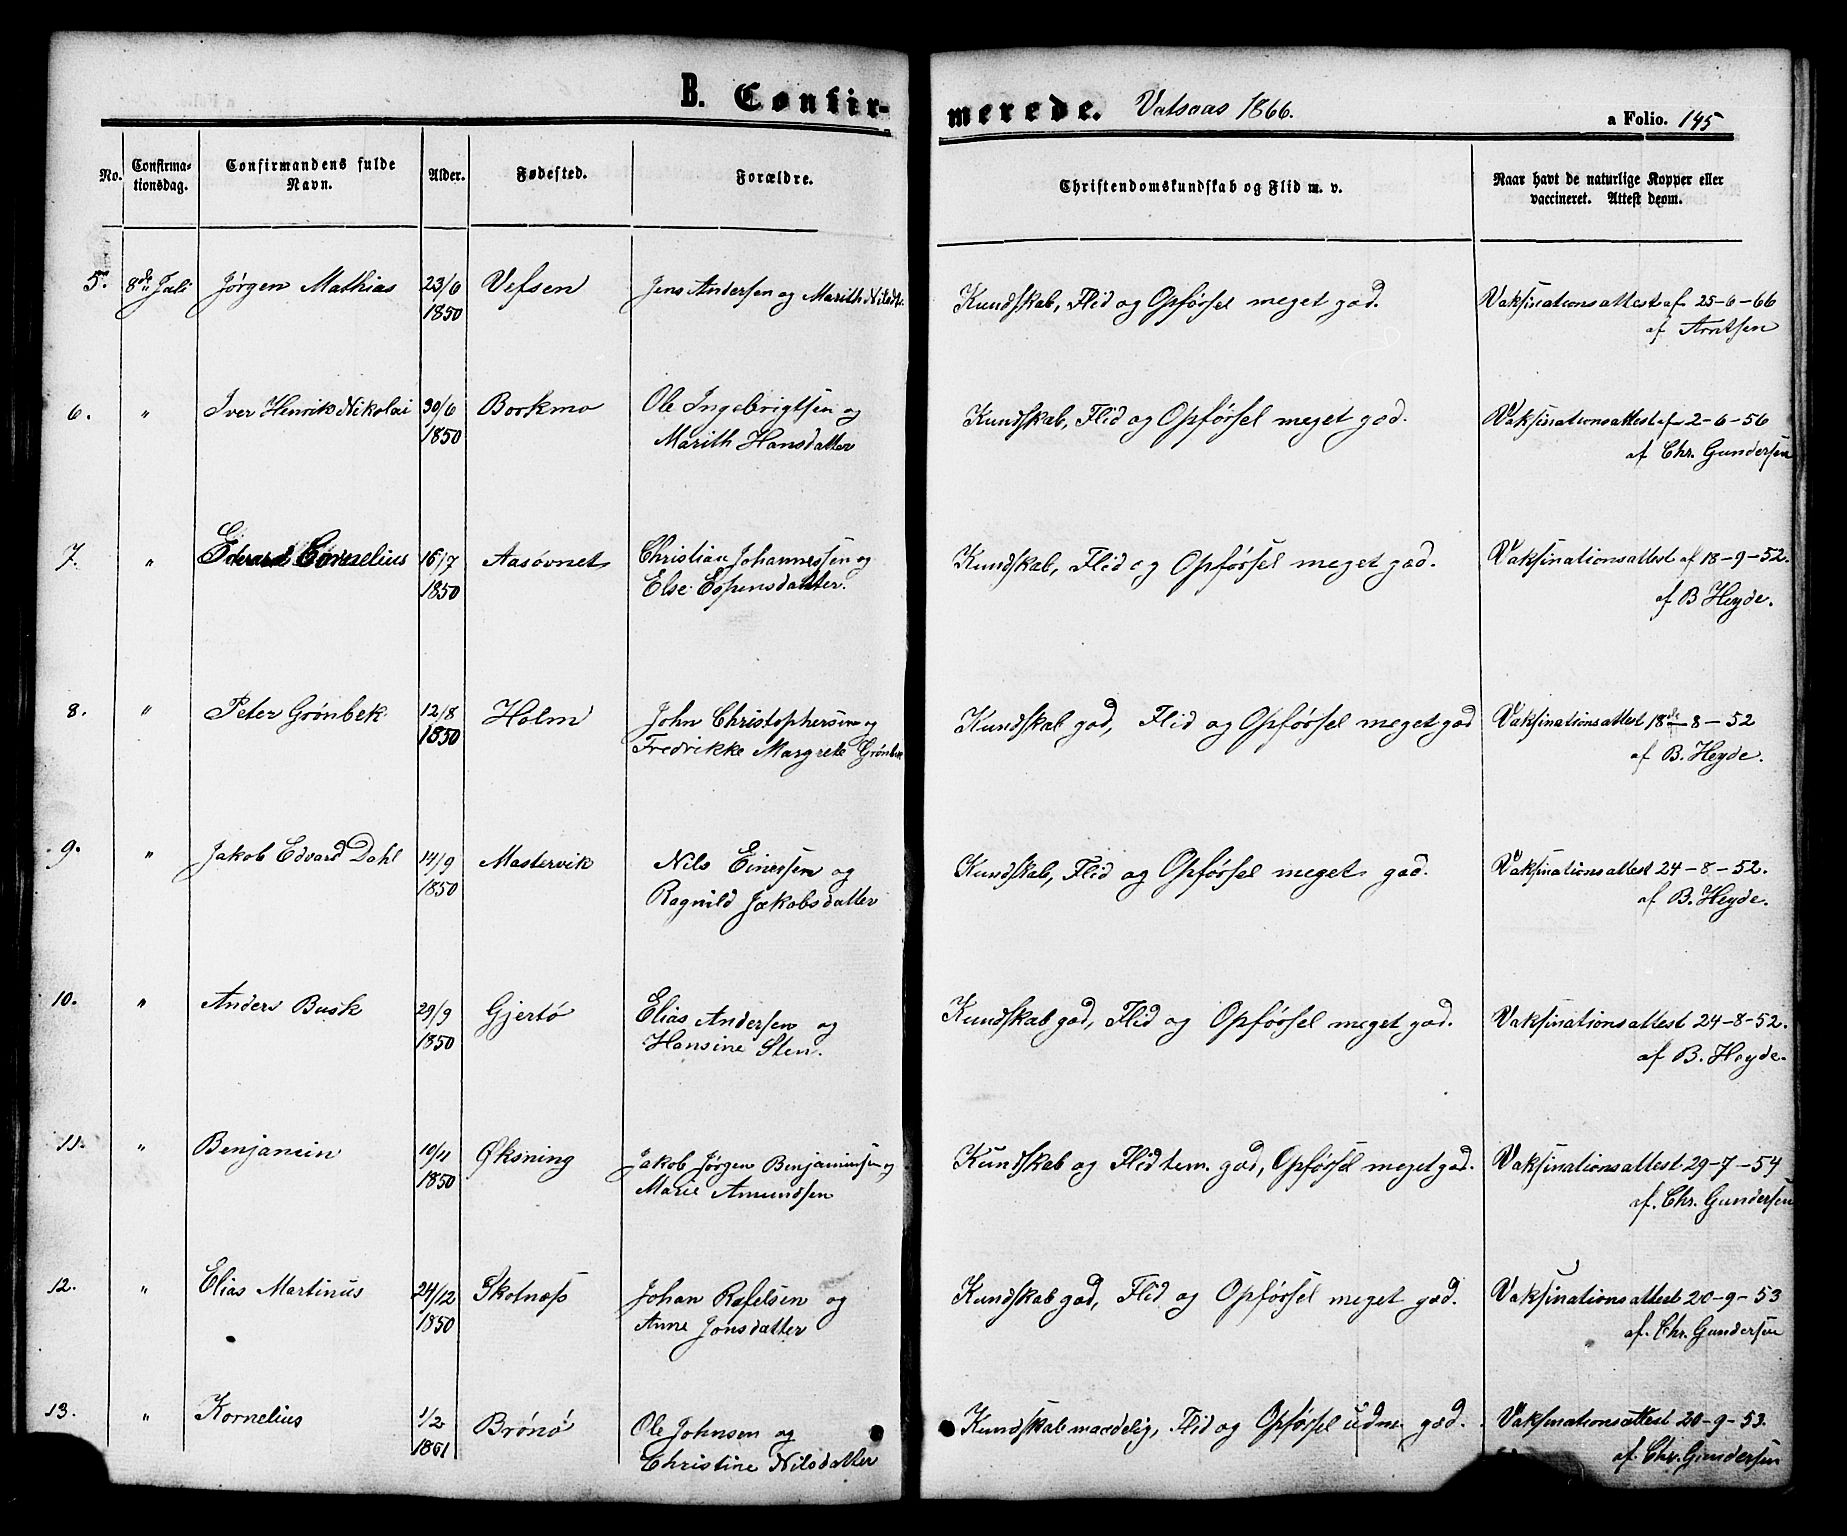 B. Confir-
merede. Vatsaas 1866.
a Folio. 145
No.
Confirma-
tionsdag.
Confirmandens fulde
Navn.
Alder.
Fødested.
Forældre.
Christendomskundskab og Flid m. v.
Naar havt de naturlige Kopper eller
vaccineret. Attest deom.
5. 8de Juli Jørgen Mathias 23/6 Vefsen Jens Andersen og Marith Nilsdt. Kundskab, Flid og Opførsel meget god. Vaksinationsattest af 25-6-66
1850 af Arntsen
6. " Iver Henrik Nikolai 30/6 Borkmo Ole Ingebrigtsen og Kundskab, Flid og Opførsel meget god. Vaksinationsattest af 2-6-56
1850 Marith Hansdatter af Chr. Gundersen
7. " Edvard Cornelius 16/7 Aasøvnet Christian Johannessen og Kundskab, Flid og Opførsel meget god. Vaksinationsattest af 18-9-52.
1850 Else Espensdatter. af B Heyde.
8. " Peter Grønbek 12/8 Holm John Christophersen og Kundskab god, Flid og Opførsel meget god Vaksinationsattest 18de-8-52
1850 Fredrikke Margrete Grønbek af B. Heyde.
9. " Jakob Edvard Dahl 14/9 Mastervik Nils Einersen og Kundskab, Flid og Opførsel meget god. Vaksinationsattest 24-8-52.
1850 Ragnild Jakobsdatter af B. Heyde.
10. " Anders Busk 29/9 Gjertø Elias Andersen og Kundskab god, Flid og Opførsel meget god. Vaksinationsattest 24-8-52.
1850 Hansine Sten. af B. Heyde.
11. " Benjamin 10/11 Øksning Jakob Jørgen Benjaminsen og Kundskab og Flid tem. god, Opførsel meget god. Vaksinationsattest 29-7-54
1850 Marie Amundsen af. Chr. Gundersen
12. " Elias Martinus 24/12 Skotnæs Johan Rafelsen og Kundskab god, Flid og Opførsel meget god. Vaksinationsattest 20-9-53
1850 Anne Jonsdatter af. Chr. Gundersen
13. " Kornelius 1/2 Brønø Ole Johnsen og Kundskab maadelig, Flid og Opførsel udm. god. Vaksinationsattest 20-9-53.
1851 Christine Nilsdatter af. Chr. Gundersen